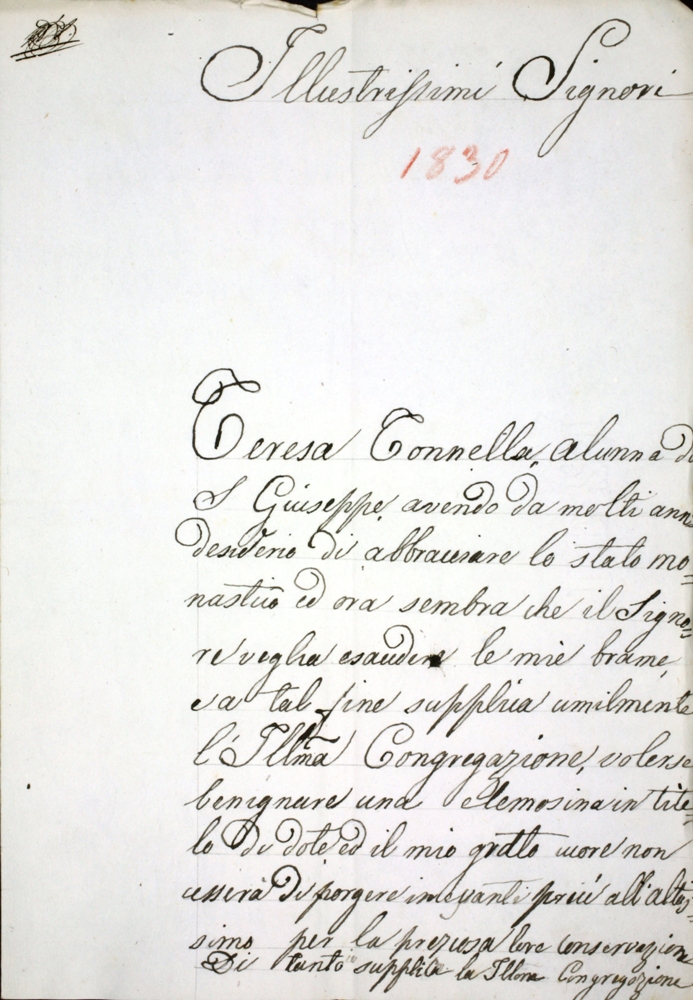 Illustrissimi Signori
1830
Teresa Tonnella, alunna di
S Giuseppe, avendo da molti anni
desiderio di abbracciare lo stato mo=
nastico ed ora sembra che il Signo=
re veglia esaudire le mie brame,
e a tal fine supplica umilmente
l'Illma Congregazione, volerse
benignare una elemosina in tito=
lo di dote ed il mio grato cuore non
cesserà di porgere incessanti preci all'altis=
simo per la preziosa loro conservazione
Di tanto supplica la Illma Congregazione